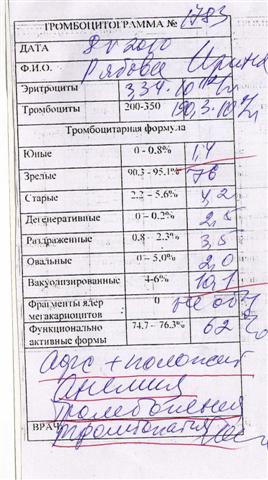 ТРОМБОЦИТОГРАММА № 1783
ДАТА
Ф.И.О. Рябова Ирина
Эритроциты 334·10¹²/л
Тромбоциты 200-350 190,3·10⁹/л
Тромбоцитарная формула
Юные 0 – 0.8% 1,4
Зрелые 90.3 - 95.1% 76
Старые 2.2 – 5.6% 4,2
Дегенеративные 0 – 0.2% 2,5
Раздраженные 0.8 – 2.3% 3,5
Овальные 0 – 5.0% 2,0
Вакуолизированные 4-6% 10,1
Фрагменты ядер мегакариоцитов 0 не обн
Функционально активные формы 74.7 – 76.3% 62 %
+ положит
Анемия
Тромбопения
Тромбопатия
ВРАЧ